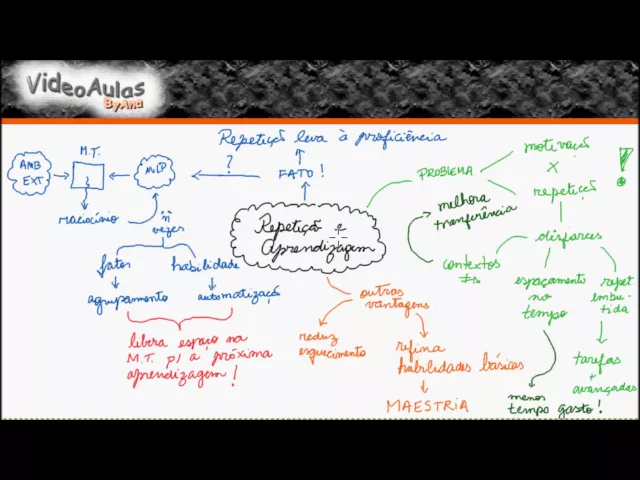 VideoAulas
ByAna
Repetição leva à proficiência
?
FATO!
M.T.
AMB
EXT
MLP
?
raciocínio
"n"
vezes
fatos
habilidade
agrupamento
automatização
libera espaço na
M.T. p/ a próxima
aprendizagem!
Repetição e
Aprendizagem
PROBLEMA
motivação
X
repetição
!
disfarces
melhora
tranferência
contextos
≠s
espaçamento
no
tempo
repet.
embu-
tida
tarefas
+
avançadas
menos
tempo gasto!
outras
vantagens
reduz
esquecimento
refina
habilidades básicas
MAESTRIA